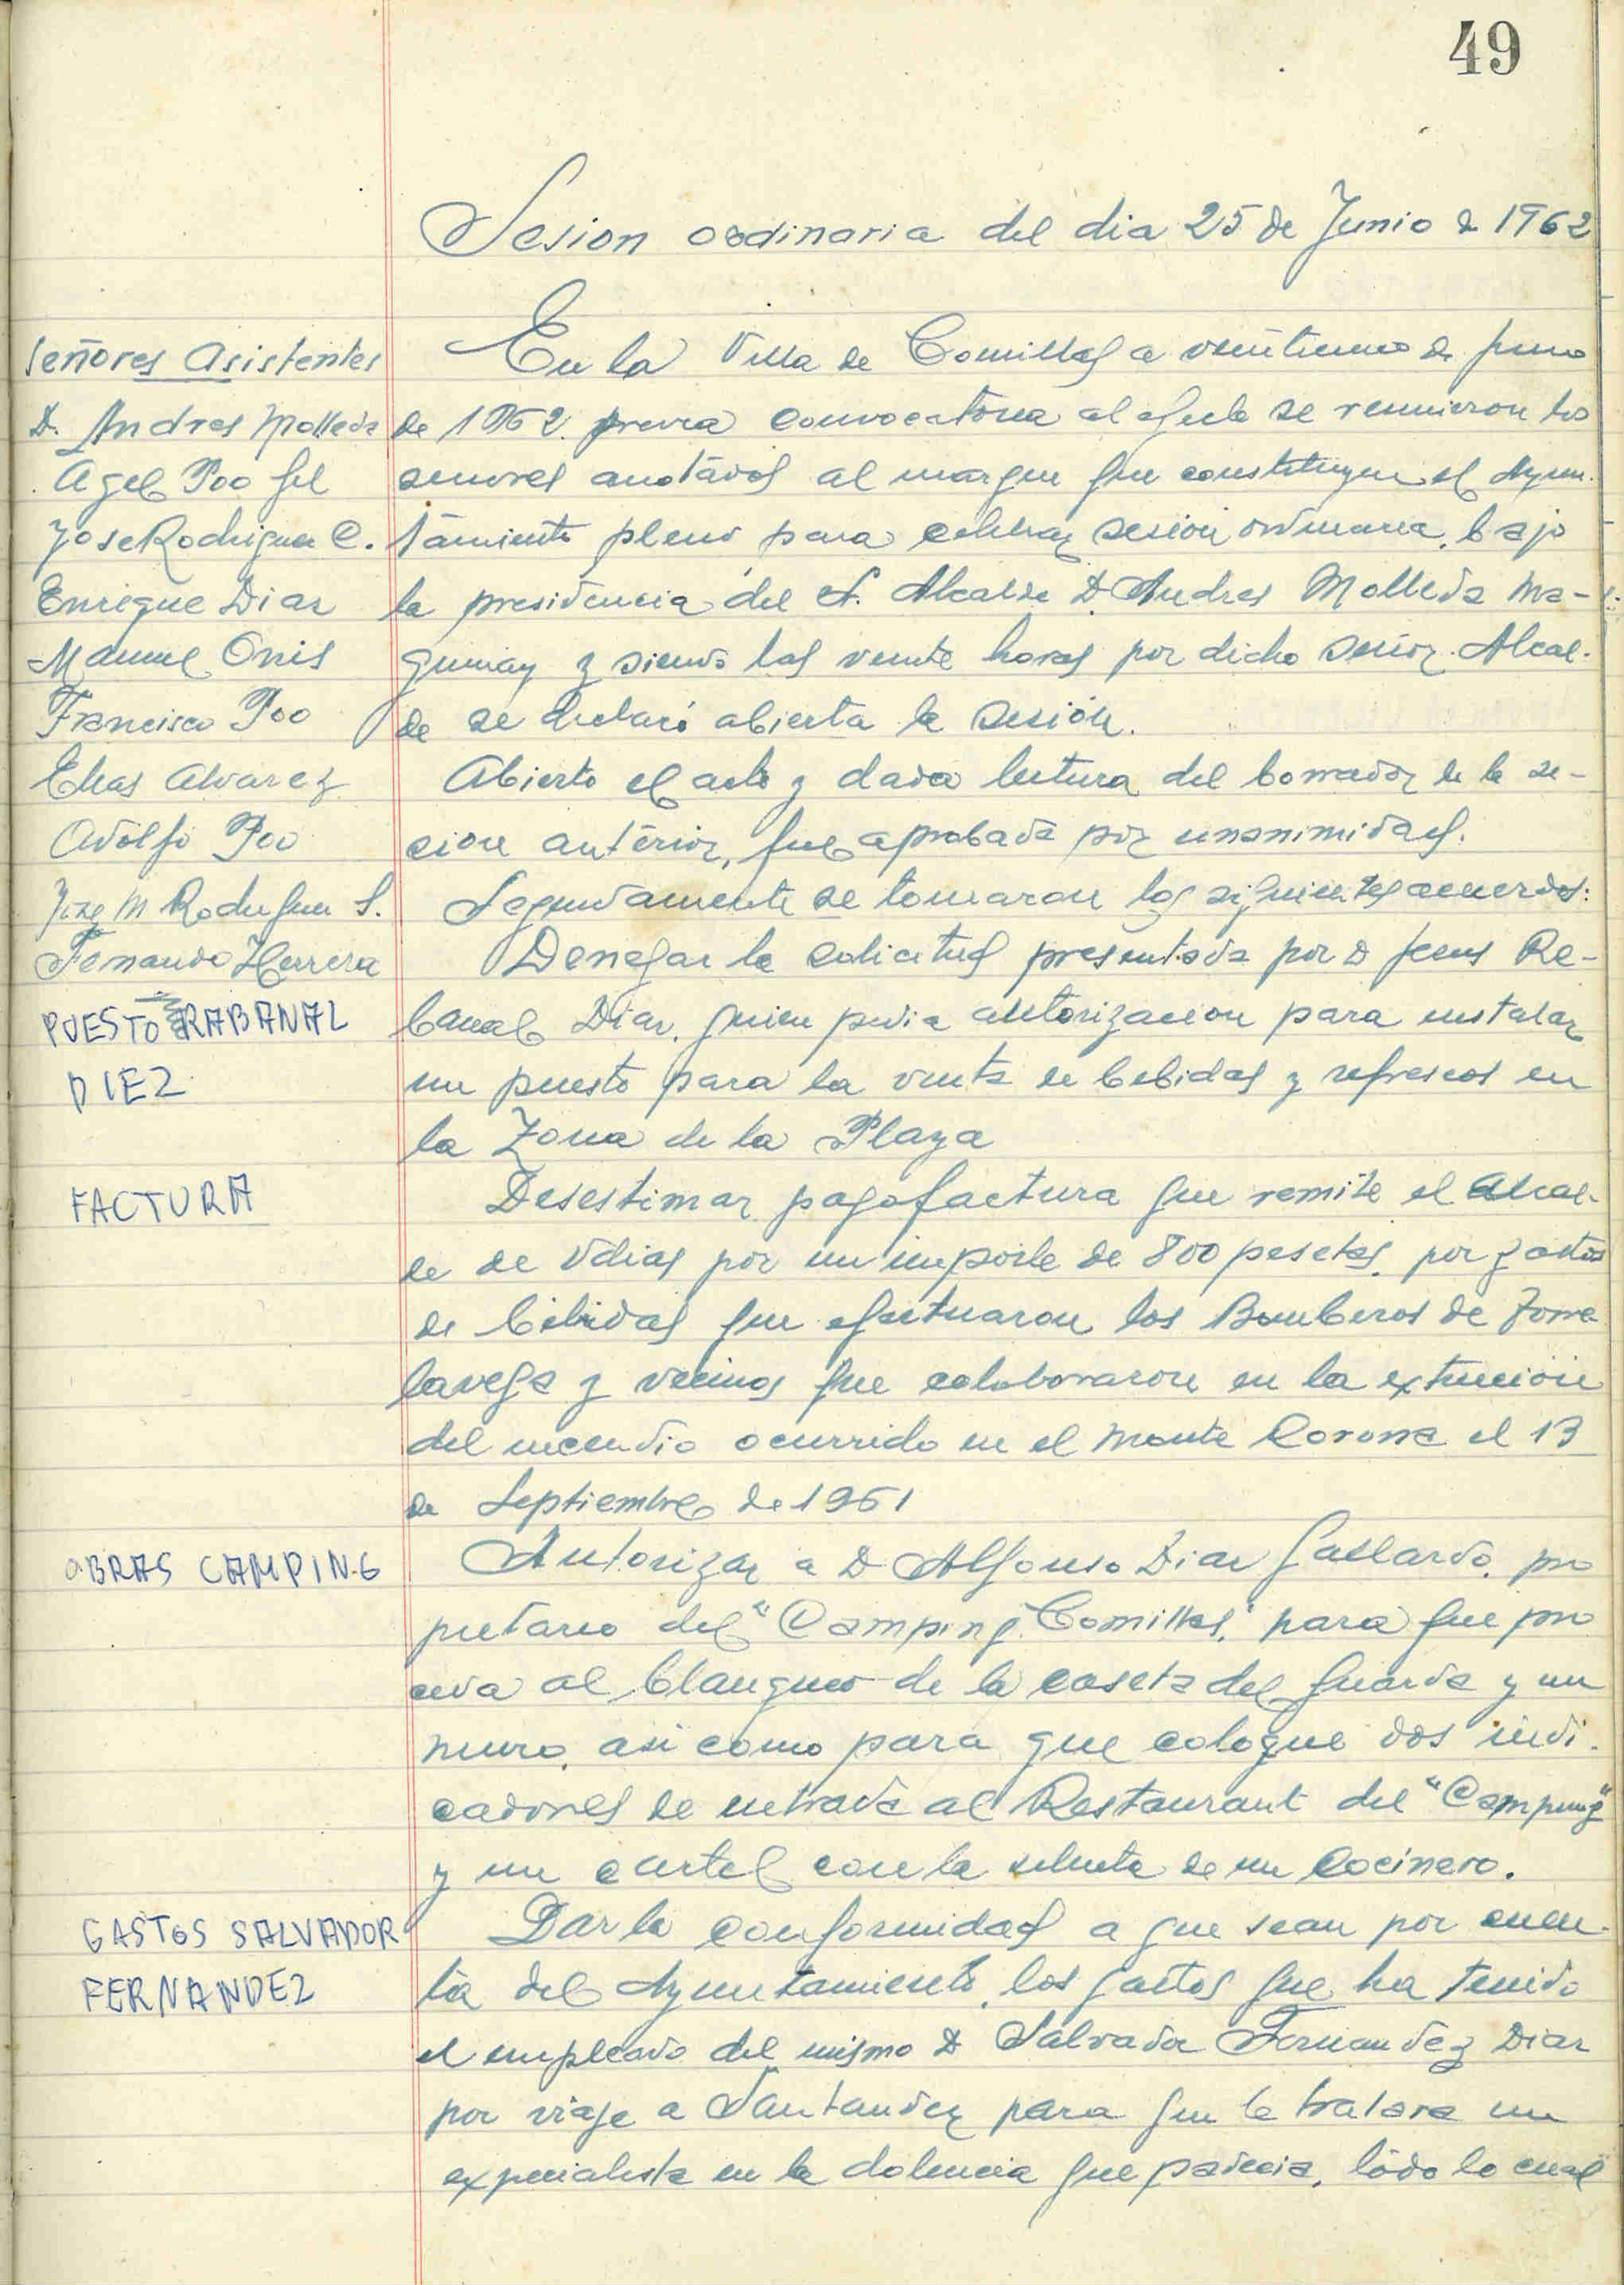 49
Sesion ordinaria del dia 25 de Junio de 1962
Señores Asistentes
D. Andres Molleda
Agel Poo Gil
Jose Rodriguez C.
Enrique Diaz
Manuel Onis
Francisco Poo
Elias Alvarez
Adolfo Poo
Jose M Rodriguez S.
Fernando Herrera
PUESTO RABANAL
DIEZ
FACTURA
OBRAS CAMPING
GASTOS SALVADOR
FERNANDEZ
En la Villa de Comillas a veinticinco de junio
de 1962. previa convocatoria al efecto se reunieron los
señores anotados al margen que constituyen el Ayun-
tamiento pleno para celebrar sesion ordinaria, bajo
la presidencia del S. Alcalde D. Andres Molleda Ma-
y siendo las veinte horas por dicho señor Alcal-
de se declaró abierta la sesión.
Abierto el acto y dada lectura del borrador de la se-
sion anterior, fue aprobada por unanimidad.
Segundamente se tomaron los siguientes acuerdos:
Denegar la solicitud presentada por D Jesus Ra-
banal Diaz. quien pedia autorizacion para instalar
un puesto para la venta de bebidas y refrescos en
la Zona de la Playa
Desestimar pago factura que remite el Alcal-
de de Udias por un importe de 800 pesetas, por gastos
de bebidas que efectuaron los Bomberos de Torre-
lavega y vecinos que colaboraron en la extincion
del incendio ocurrido en el monte Corona el 13
de Septiembre de 1961
Autorizar a D Alfonso Diaz Gallardo, pro
pietario del "Camping Comillas" para que pro
ceda al blanqueo de la caseta del guarda y un
muro, asi como para que coloque dos indi-
cadores de entrada al Restaurant del "Camping"
y un cartel con la silueta de un Cocinero.
Dar la conformidad a que sean por cuen-
ta del Ayuntamiento, los gastos que ha tenido
el empleado del mismo D Salvador Fernandez Diaz
por viaje a Santander para que le tratara un
especialista en la dolencia que padecia, todo lo cual